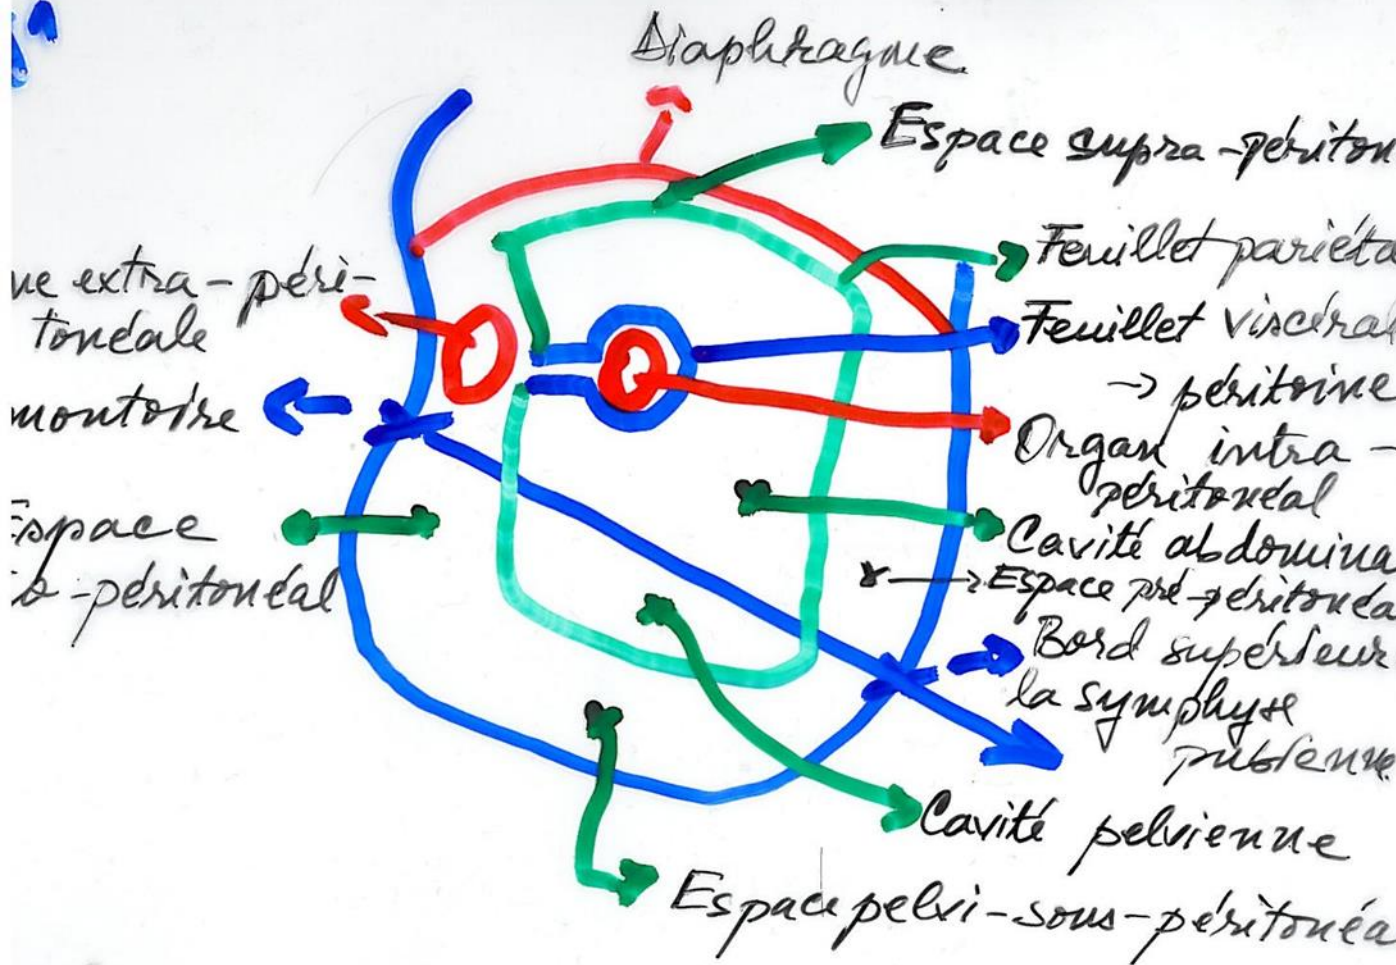 Diaphragme
Espace supra-périton
Feuillet pariéta
Feuillet viscéral
→ péritoine
Organ intra-
péritonéal
Cavité abdomina
Espace pré-péritonéa
Bord supérieur
la symphyse
pubienne
Cavité pelvienne
Espace pelvi-sous-péritonéa
ne extra-péri-
tonéale
montoire
Espace
o-péritonéal